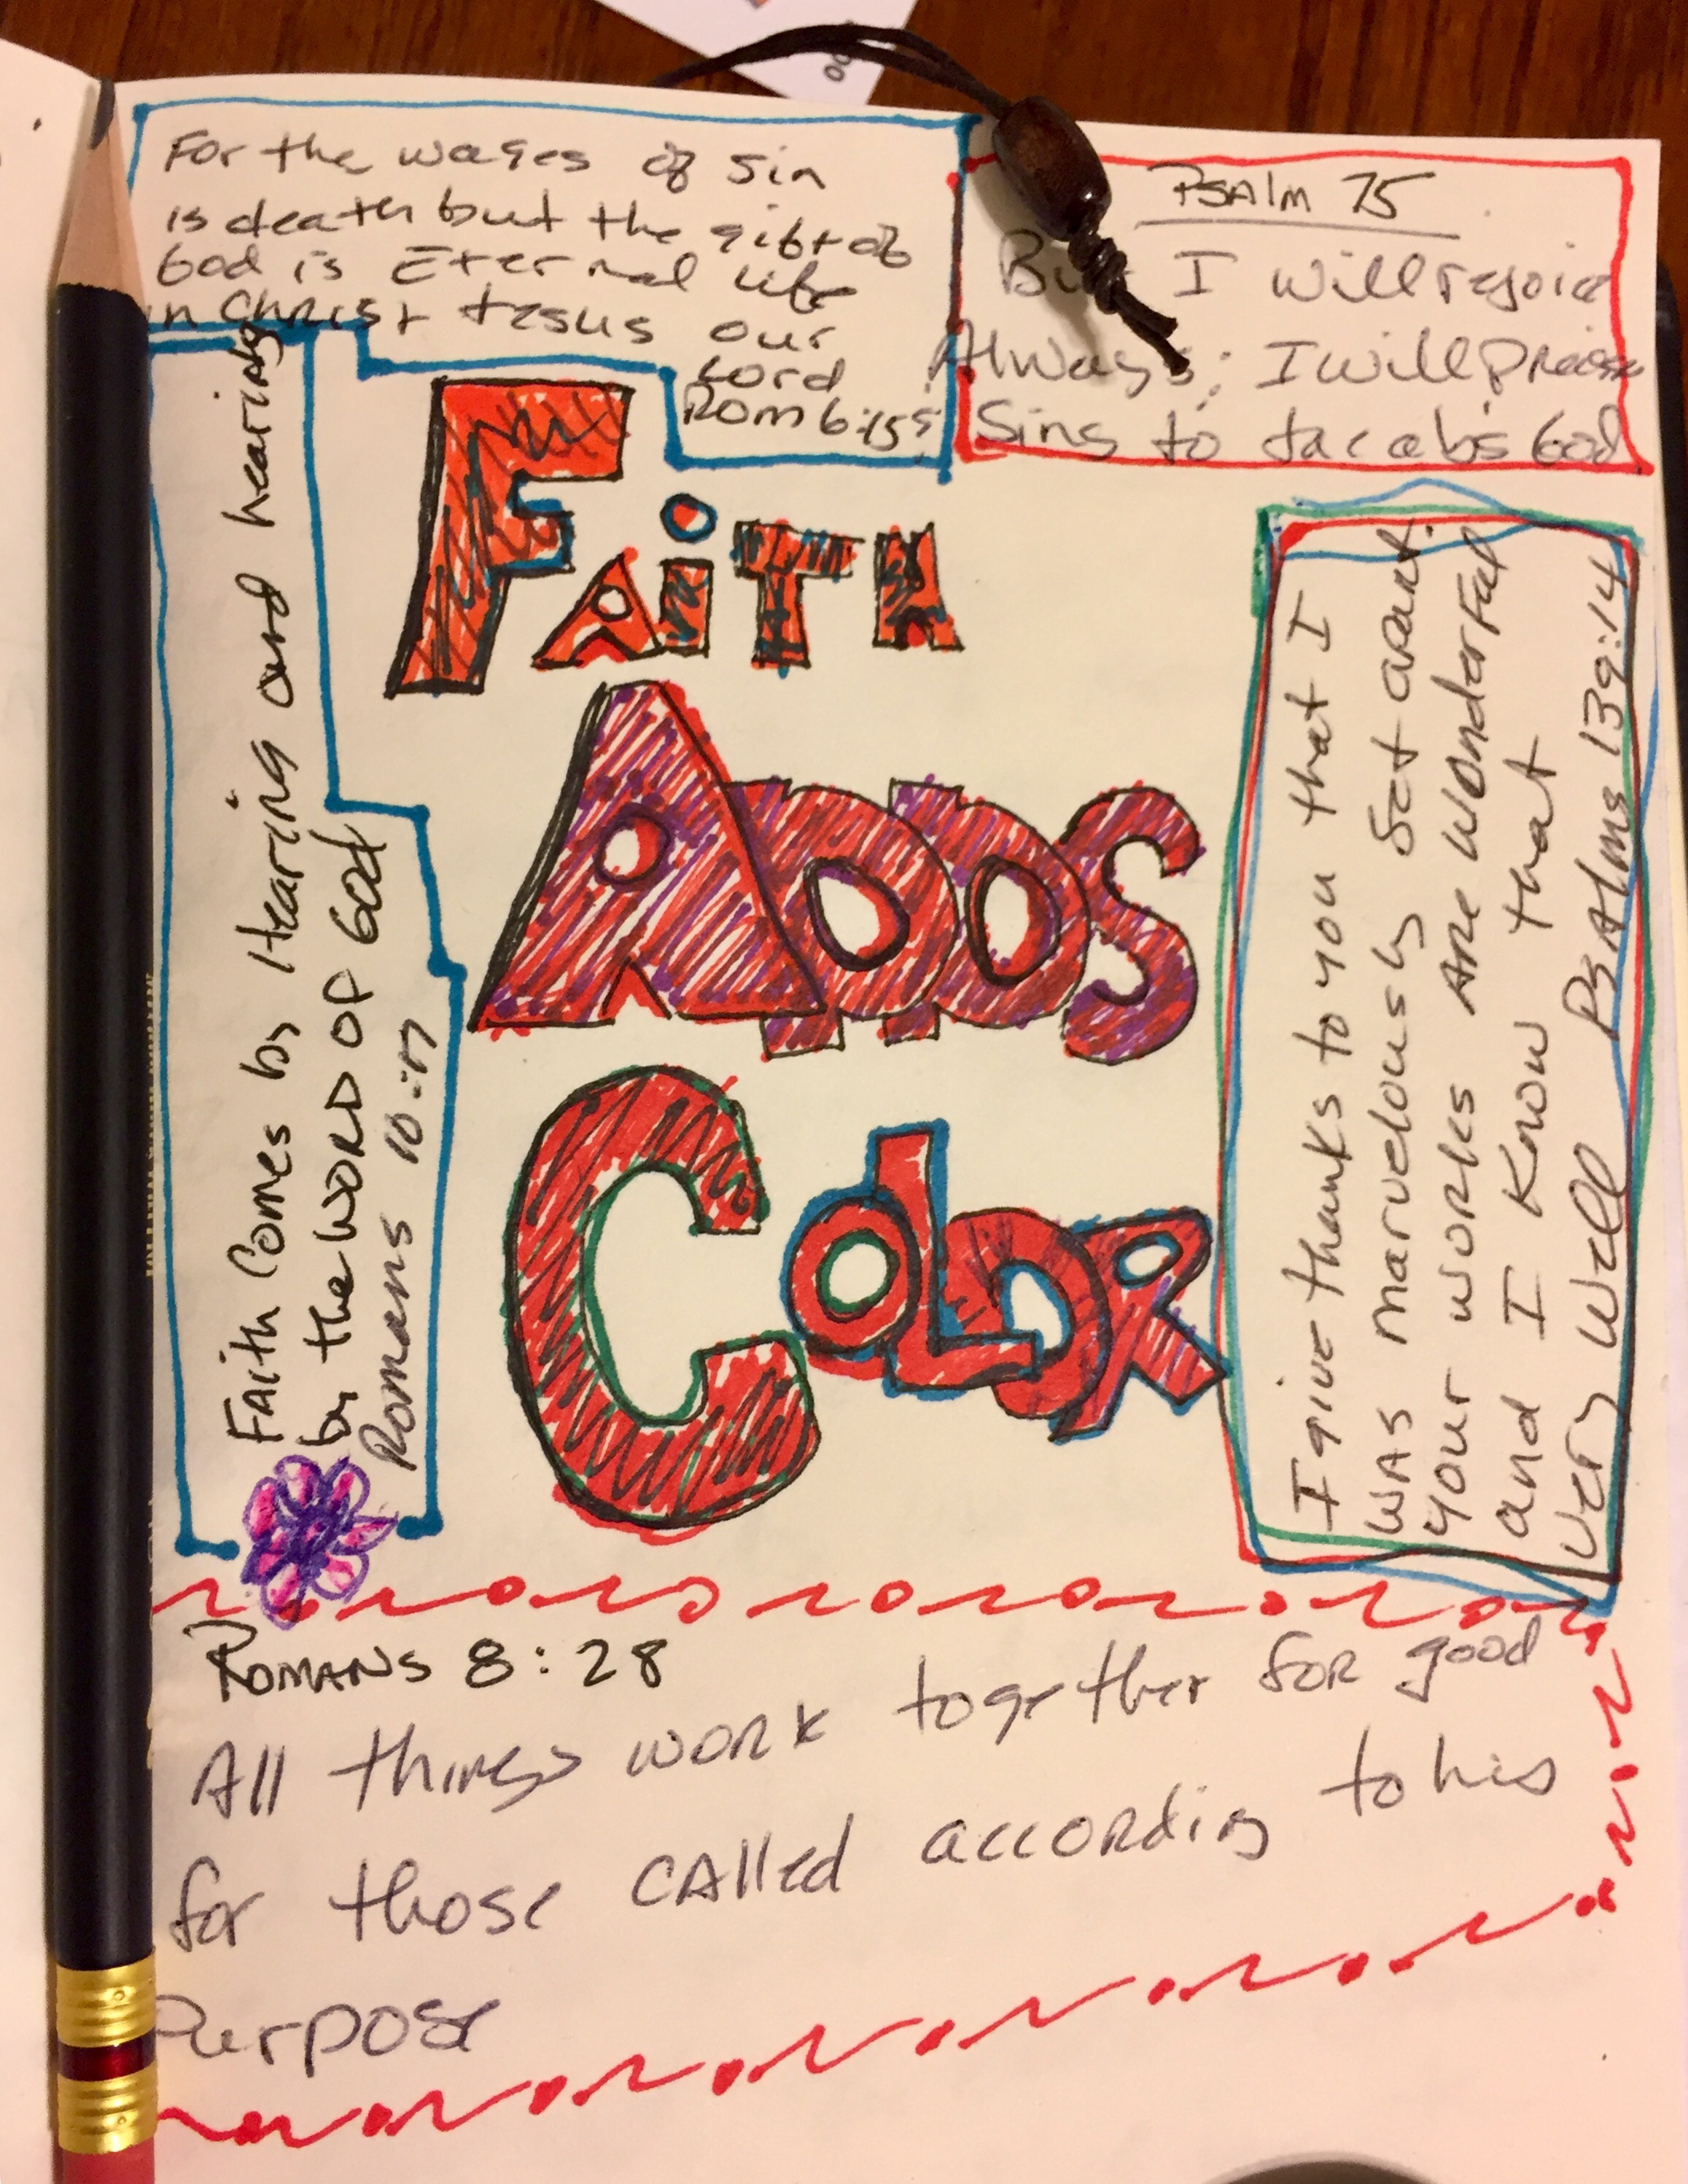 For the wages of sin
is death but the gift of
God is Eternal life
in Christ Jesus our
Lord
Rom 6:
Psalm 75
But I will rejoice
Always; I will Praise
Sing to Jacobs God
Faith Comes by Hearing and hearing
by the WORD OF God
Romans 10:17
FAiTH
ADDS
COLOR
I give thanks to you that I
was marvelously Set apart.
your works Are Wonderful
and I Know that
Very Well Psalms 139:14
ROMANS 8:28
All things work together for good
for those CAlled according to his
Purpose